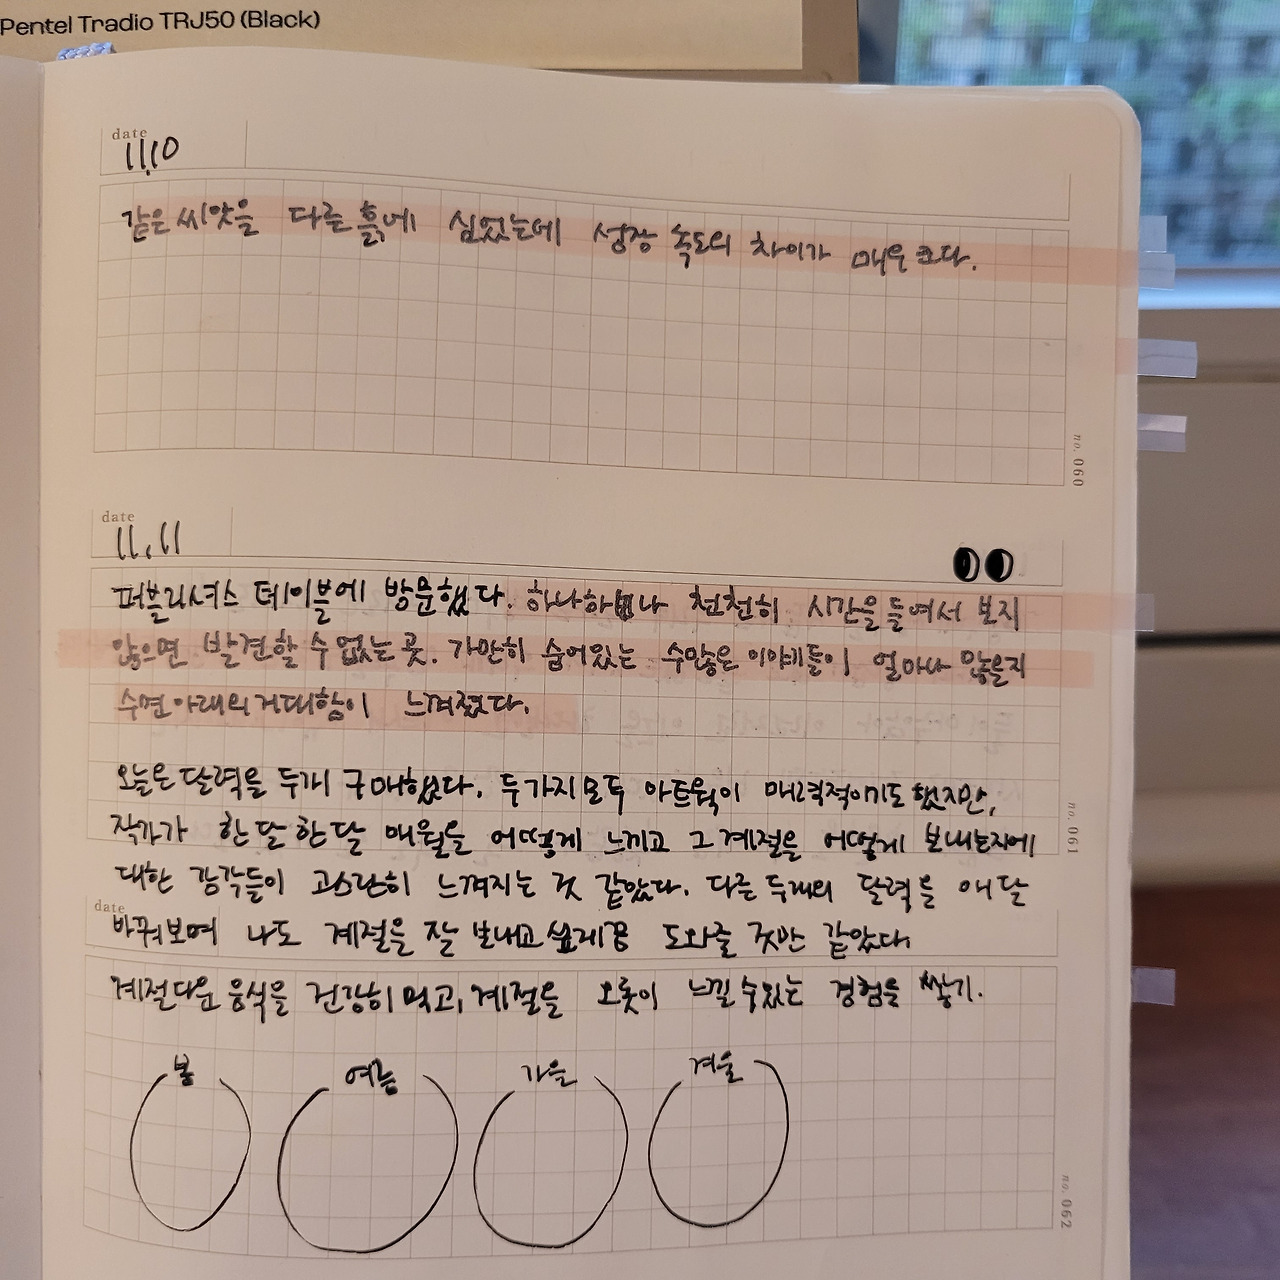 Pentel Tradio TRJ50 (Black)
date
11.10
같은 씨앗을 다른 흙에 심었는데 성장 속도의 차이가 매우 크다.
no. 060
date
11.11
퍼블리셔스 테이블에 방문했다. 하나하나 천천히 시간을 들여서 보지
않으면 발견할 수 없는 곳. 가만히 숨어있는 수많은 이야기들이 얼마나 많은지
수면 아래의 거대함이 느껴졌다.
오늘은 달력을 두개 구매했다. 두가지 모두 아트웍이 매력적이기도 했지만,
작가가 한달 한달 매월을 어떻게 느끼고 그 계절을 어떻게 보내는지에
no. 061
대한 감각들이 고스란히 느껴지는 것 같았다. 다른 두개의 달력을 매달
date
바꿔보며 나도 계절을 잘 보내고 도와줄 것만 같았다.
계절다운 음식을 건강히 먹고, 계절을 오롯이 느낄 수 있는 경험을 쌓기.
봄 여름 가을 겨울
no. 062